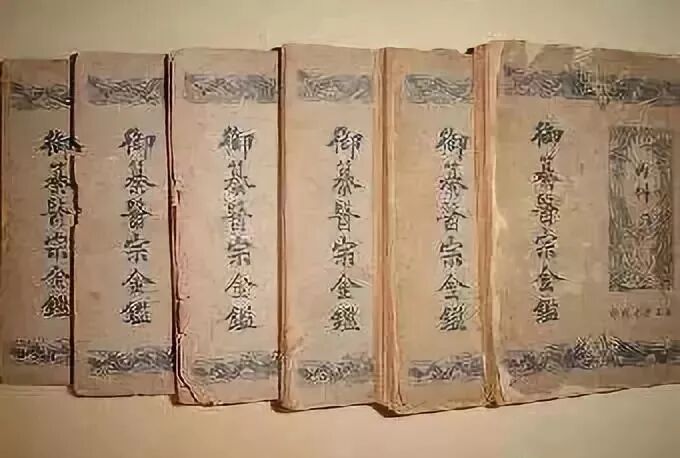 御纂醫宗金鑑
御纂醫宗金鑑
御纂醫宗金鑑
御纂醫宗金鑑
御纂醫宗金鑑
御纂醫宗金鑑